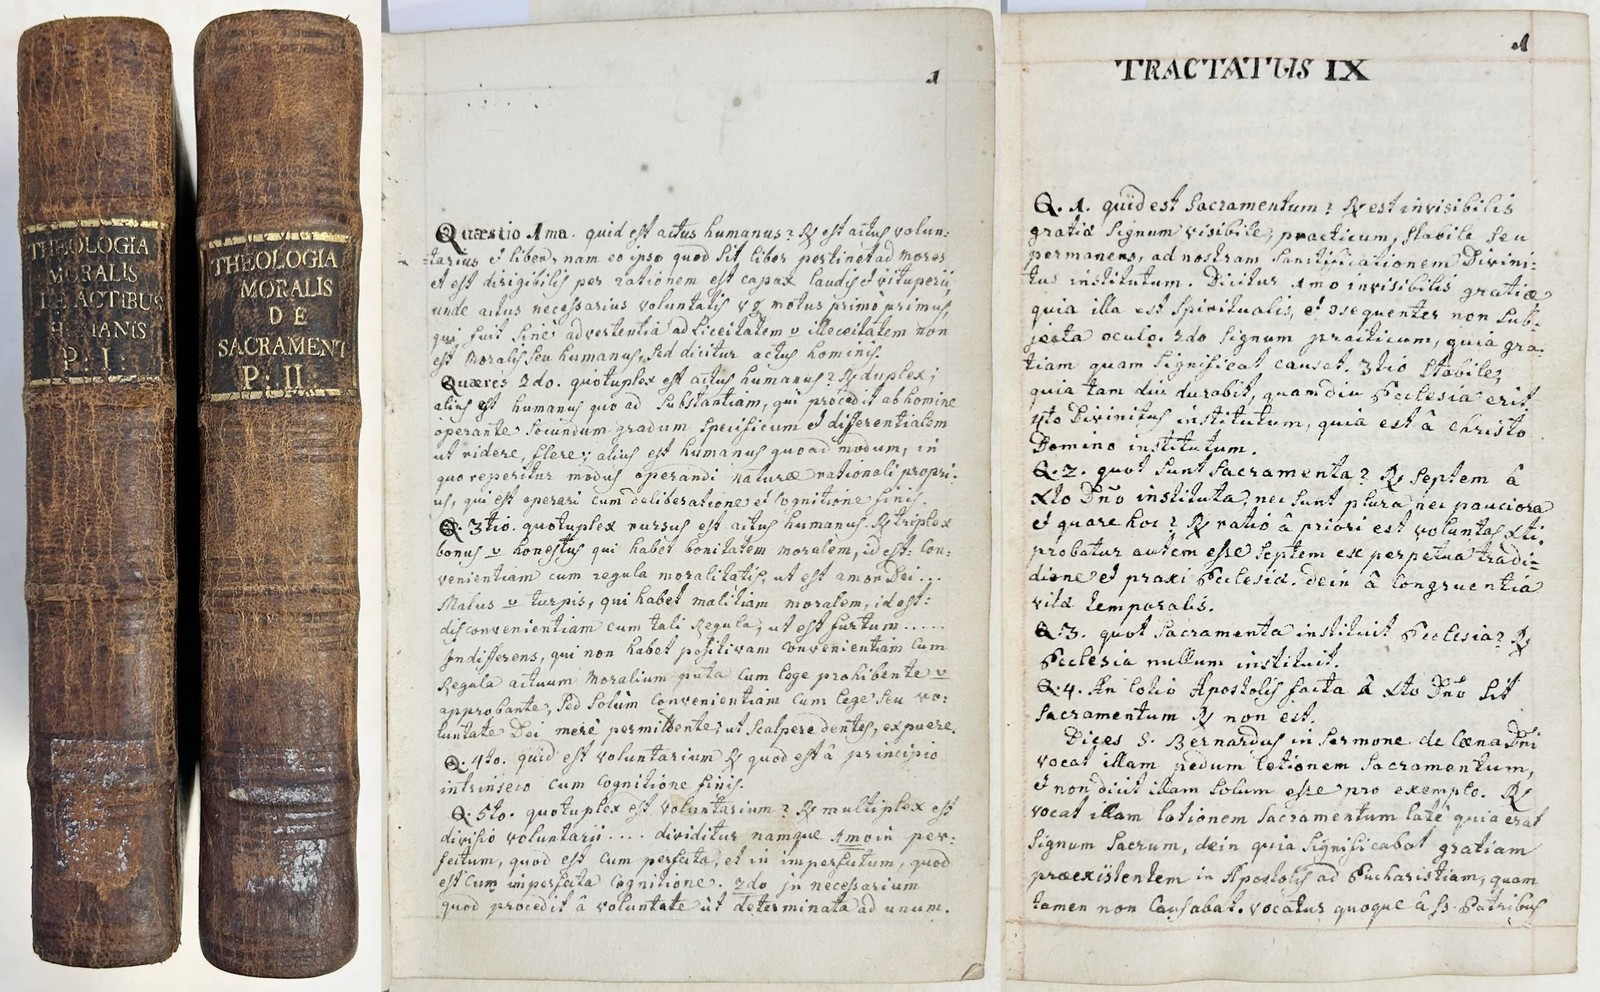 THEOLOGIA
MORALIS
DE ACTIBUS
HUMANIS
P: I.
THEOLOGIA
MORALIS
DE
SACRAMENT
P: II
1
Quæstio 1ma. quid est actus humanus? R est actus volun-
tarius et liber, nam eo ipso quod sit liber pertinet ad mores
et est dirigibilis per rationem est capax laudis et vituperii,
unde actus necessarius voluntatis v g motus primo primus,
qui fuit sine advertentia ad liceitatem v illiceitatem non
est Moralis seu humanus, sed dicitur actus hominis.
Quæres 2do. quotuplex est actus humanus? R duplex;
alius est humanus quo ad substantiam, qui procedit ab homine
operante secundum gradum specificum et differentialem
ut ridere, flere; alius est humanus quoad modum, in
quo reperitur modus operandi naturæ rationali propri-
us, qui est operari cum deliberatione et Cognitione finis.
Q. 3tio. quotuplex rursus est actus humanus. R triplex
bonus v honestus qui habet bonitatem moralem, id est: Con:
venientiam cum regula moralitatis, ut est amor Dei...
Malus v turpis, qui habet malitiam moralem, id est:
disconvenientiam cum tali Regula, ut est furtum.....
Indifferens, qui non habet positivam convenientiam Cum
Regula actuum Moralium puta Cum lege prohibente v
approbante, sed solùm Convenientiam Cum lege seu vo:
luntate Dei merè permittente, ut scalpere dentes, expuere.
Q. 4to. quid est voluntarium R quod est â principio
intrinseco Cum Cognitione finis.
Q. 5to. quotuplex est voluntarium? R multiplex est
divisio voluntarii.... dividitur namque 1mo in per:
fectum, quod est Cum perfecta, et in imperfectum, quod
est Cum imperfecta Cognitione. 2do in necessarium
quod procedit â voluntate ut determinata ad unum.
1
TRACTATUS IX
Q. 1. quid est Sacramentum? R est invisibilis
gratiæ signum visibile, practicum, stabile seu
permanens, ad nostram Sanctificationem Divini:
tus institutum. Dicitur 1mo invisibilis gratiæ
quia illa est spiritualis, et consequenter non sub:
jecta oculo. 2do signum practicum, quia gra:
tiam quam significat causat. 3tio stabile,
quia tam diu durabit, quamdiu Ecclesia erit
4to Divinitus institutum, quia est â Christo
Domino institutum.
Q. 2. quot sunt Sacramenta? R septem â
Xto Dno instituta, nec sunt plura, nec pauciora
et quare hoc? R ratio â priori est voluntas Xti.
probatur autem esse septem ex perpetua tradi-
tione et praxi Ecclesiæ. dein â congruentia
vitæ temporalis.
Q. 3. quot Sacramenta instituit Ecclesia? R
Ecclesia nullum instituit.
Q. 4. An lotio Apostolis facta â Xto Dno sit
Sacramentum R non est.
Dices S. Bernardus in sermone de Cœna Dni
vocat illam pedum lotionem Sacramentum,
et non dicit illam solum esse pro exemplo. R
vocat illam lotionem Sacramentum latè quia erat
signum Sacrum, dein quia significabat gratiam
præexistentem in Apostolis ad Eucharistiam, quam
tamen non Causabat. vocatur quoque â SS. Patribus